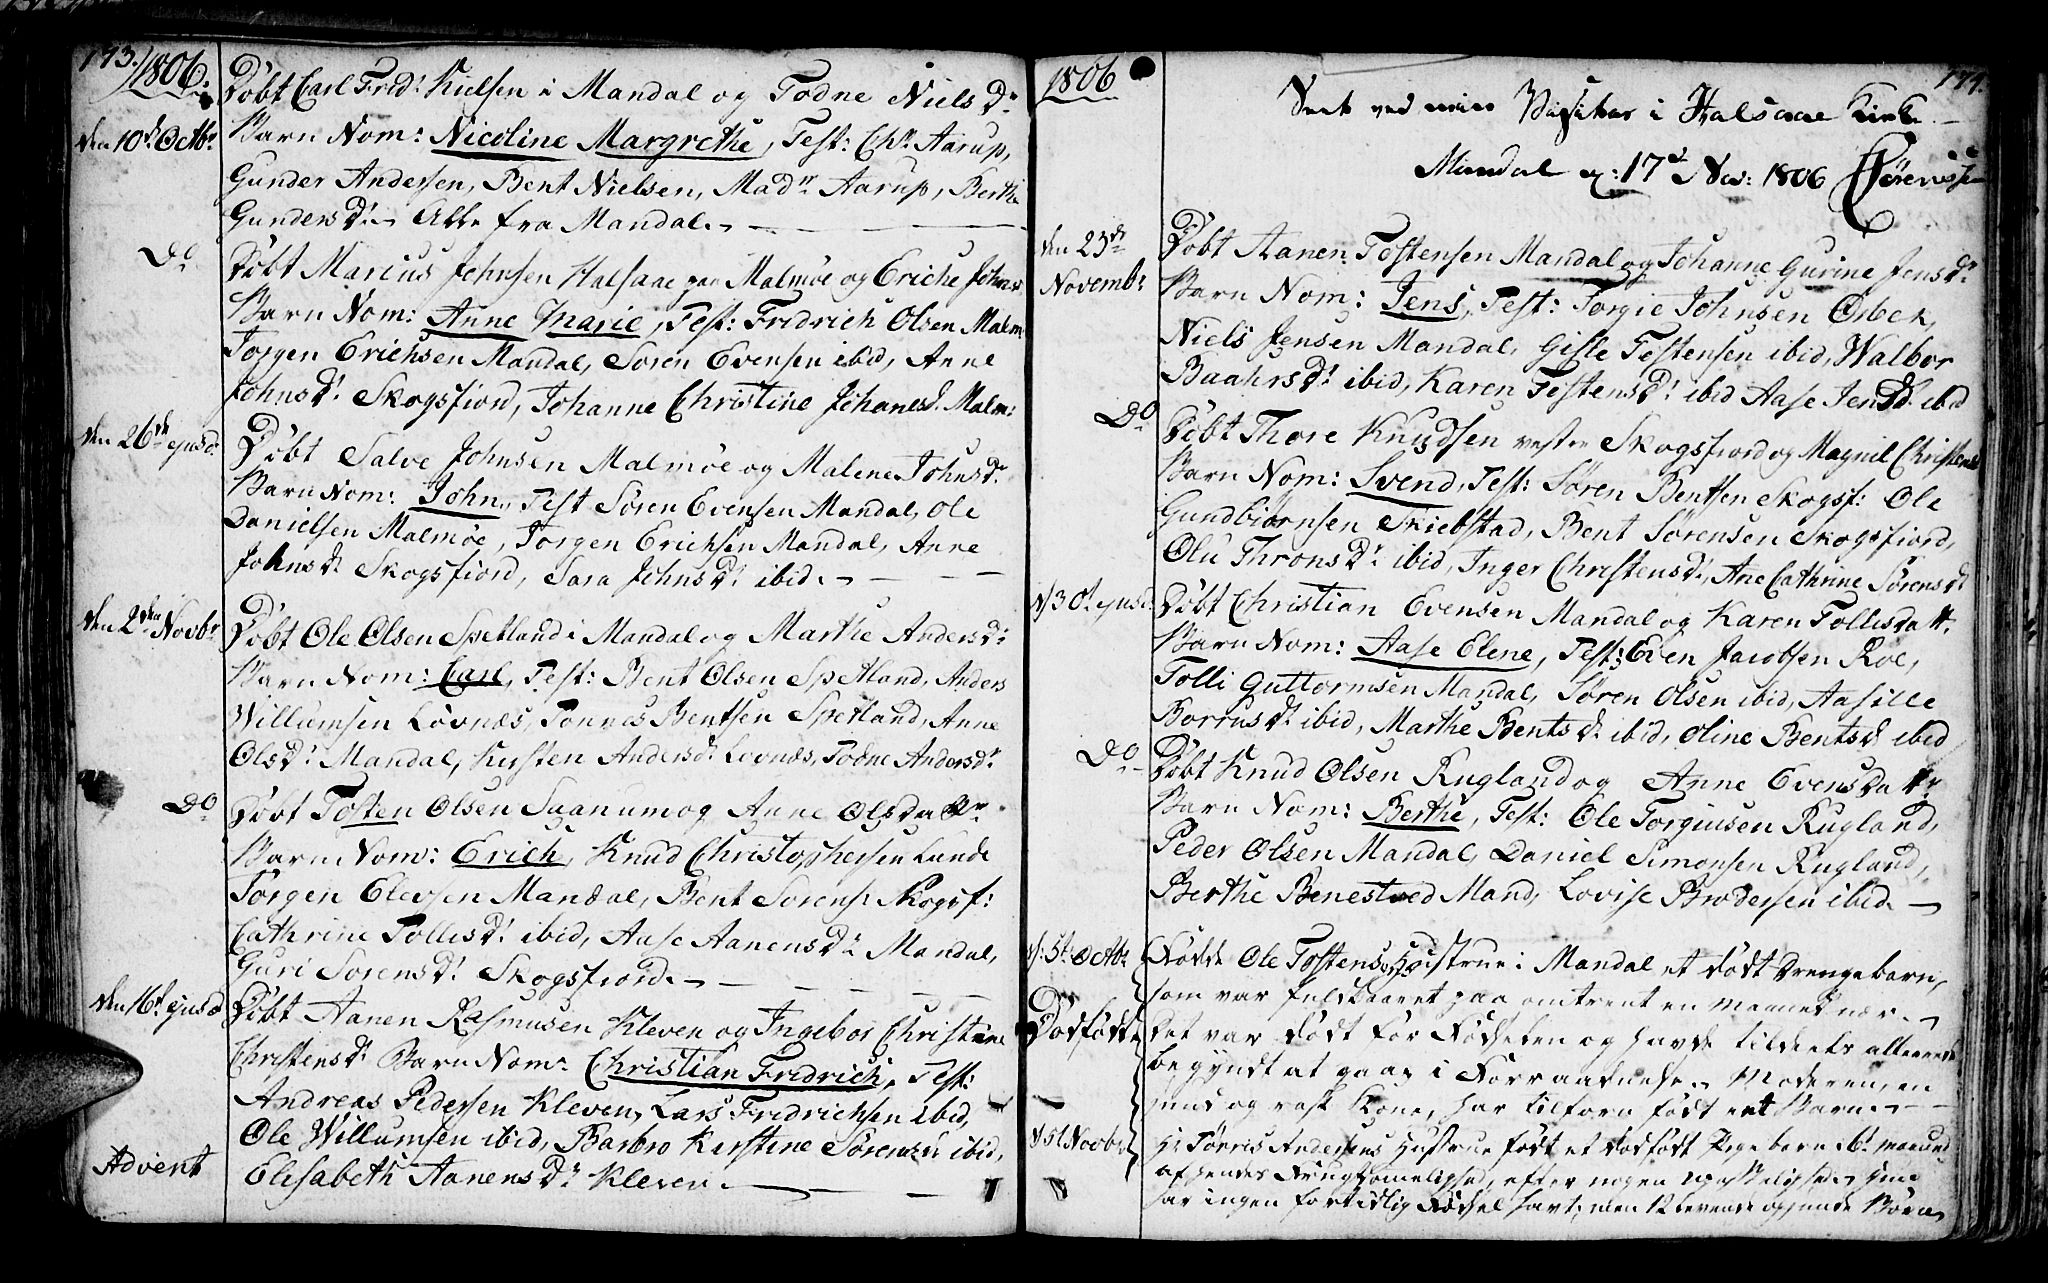 173. 1806.
Døbt Carl Frid: Kielsen i Mandal og Todne Niels Dr
den 10de Octbr Barn Nom: Nicoline Margrethe, Test: Chr. Aarup,
Gunder Andersen, Bent Nielsen, Madm Aarup, Berthe
Gundersdr Alle fra Mandal. -
Do Døbt Marcus Johnsen Halsaae paa Malmøe og Eriche Johnsdr
Barn Nom: Anne Marie, Test: Fridrich Olsen Malm:
Jørgen Erichsen Mandal, Søren Evensen ibid, Anne
Johns Dr Skogsfiord, Johanne Christine Johanesd. Malm:
den 26de ejusd: Døbt Salve Johnsen Malmøe og Malene Johns Dr
Barn Nom: John, Test Søren Evensen Mandal, Ole
Danielsen Malmøe, Jørgen Erichsen Mandal, Anne
Johns d. Skogsfiord, Sara Johns Dr ibid. -
den 2den Novbr Døbt Ole Olsen Spetland i Mandal og Marthe Anders Dr
Barn Nom: Carl, Test: Bent Olsen Spetland, Anders
Willumsen Løvnæs, Tønnes Bentsen Spetland, Anne
Ols Dr Mandal, Kirsten Anders dr Lovnæs, Todne Anders dr
Do Døbt Tosten Olsen Saanum og Anne Olsdatr
Barn Nom: Erich, Knud Christophersen Lunde
Jørgen Elevsen Mandal, Bent Sorens: Skogsf:
Cathrine Tollis Dr ibid, Aase Aanens Dr Mandal,
Guri Sorens Dr Skogsfiord. -
den 16d ejusd Døbt Aanen Rasmusen Kleven og Ingebor Christine
Christens Dr Barn Nom: Christian Fridrich, Test:
Andreas Pedersen Kleven, Lars Fridrichsen ibid,
Ole Willumsen ibid, Barbro Kirstine Sørensdr ibid,
Advent Elisabeth Aanens Dr Kleven. -
1806 174.
Seet ved min Visitas i Halsaae Kirke -
Mandal d: 17d Nov: 1806 Sørenssen
den 23de Novembr Døbt Aanen Tostensen Mandal og Johanne Gurine Jens Dr
Barn Nom: Jens, Test: Torgie Johnsen Orbek,
Niels Jensen Mandal, Gisle Tostensen ibid, Walbor
Baahrs Dr ibid, Karen Tostens Dr ibid Aase Jens d. ibid
Do Døbt Thore Knudsen vestre Skogsfiord og Magnil Christens
Barn Nom: Svend, Test: Søren Bentsen Skogsf: Ole
Gundbiørnsen Skiebstad, Bent Sørensen Skogsfiord,
Olu Throns Dr ibid, Inger Christens dr, Ane Cathrine Sørens dr
d 30t ejusd. Døbt Christian Evensen Mandal og Karen Tollisdattr
Barn Nom: Aase Elene, Test: Even Jacobsen Roe,
Tolli Guttormsen Mandal, Søren Olsen ibid, Aasille
Borrus Dr ibid, Marthe Bents dr ibid, Oline Bents d ibid
Do Døbt Knud Olsen Rugland og Anne Evensdattr
Barn Nom: Berthe, Test: Ole Torgiusen Rugland,
Peder Olsen Mandal, Daniel Simonsen Rugland,
Berthe Benestved Mand, Lovise Brodersen ibid. -
d: 5t Octbr Fødde Ole Tostens Hustrue i Mandal et dødt Drengebarn,
som var fuldbaaret paa omtrent en maaned nær. -
Dødfødte Det var dødt før Fødselen og havde tildeels allerede
begyndt at gaae i Forraadnelse. Moderen, en
sund og rask Kone, har tilforn født eet Barn. -
d 5t Novbr H: Tørris Andersens Hustrue født et dødfødt Pigebarn i 6t maaned
af hendes Frugtsomelighed, efter nogen upasselighed. Hun
har ingen fortidlig Fødsel havt; men 12 levende og sunde Børn,